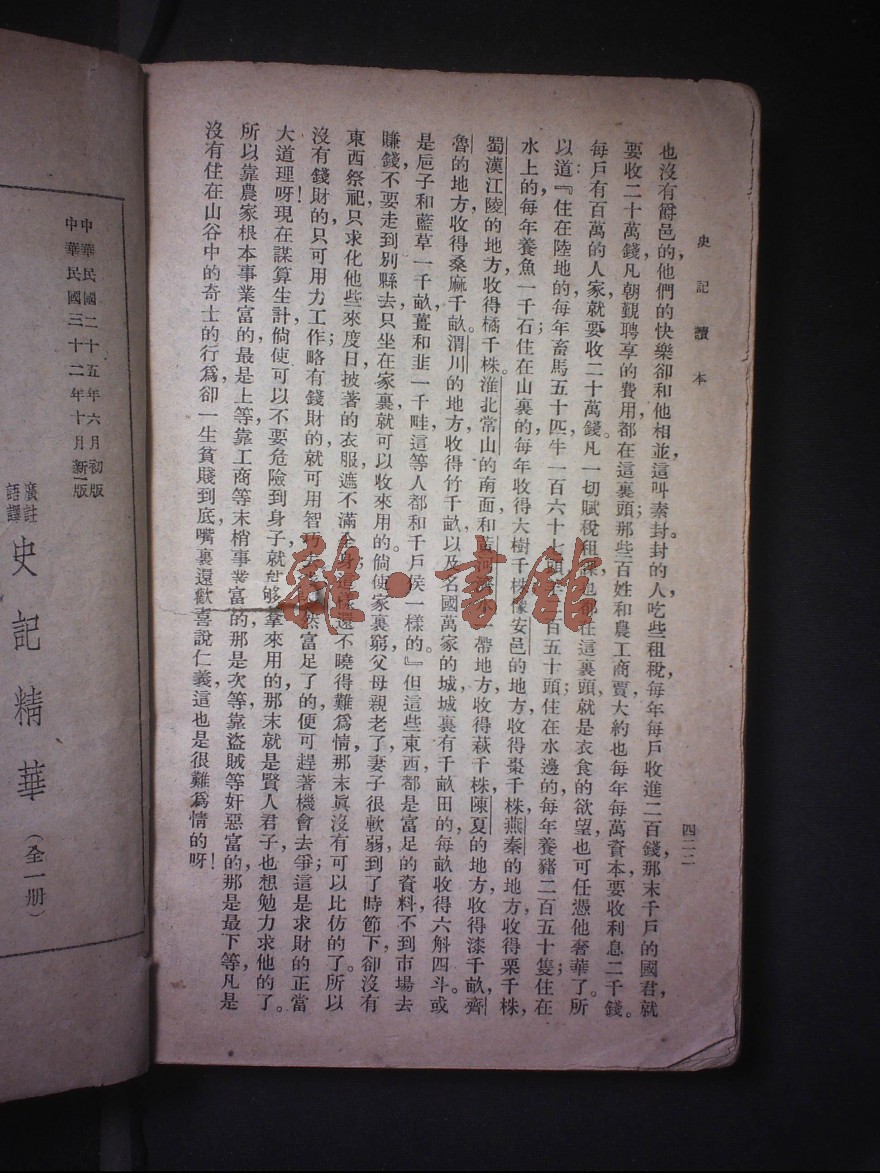 史記讀本
四二二
也沒有爵邑的，他們的快樂卻和他相並，這叫素封。封的人，吃些租稅，每年每戶收進二百錢，那末千戶的國君，就
要收二十萬錢，凡朝覲聘享的費用，都在這裏頭；那些百姓和農工商賈，大約也每年每萬資本，要收利息二千錢。
每戶有百萬的人家，就要收二十萬錢。凡一切賦稅租課，也都在這裏頭，就是衣食的欲望，也可任憑他奢華了。所
以道：『住在陸地的，每年畜馬五十匹，牛一百六十七頭，二百五十頭；住在水邊的，每年養豬二百五十隻；住在
水上的，每年養魚一千石；住在山裏的，每年收得大樹千株。像安邑的地方，收得棗千株，燕秦的地方，收得栗千株，
蜀漢江陵的地方，收得橘千株。淮北常山的南面，和黃河濟水一帶地方，收得萩千株，陳夏的地方，收得漆千畝，齊
魯的地方，收得桑麻千畝。渭川的地方，收得竹千畝，以及名國萬家的城，城裏有千畝田的，每畝收得六斛四斗。或
是巵子和藍草一千畝，薑和韭一千畦，這等人都和千戶侯一樣的。』但這些東西，都是富足的資料，不到市場去
賺錢，不要走到別縣去，只坐在家裏，就可以收來用的。倘使家裏窮，父母親老了，妻子很軟弱，到了時節下，卻沒有
東西祭祀，只求化他些來度日，披著的衣服，遮不滿全身，這樣還不曉得難爲情，那末眞沒有可以比仿的了。所以
沒有錢財的，只可用力工作；略有錢財的，就可用智巧去然富足了的，便可趕著機會去爭；這是求財的正當
大道理呀！現在謀算生計，倘使可以不要危險到身子，就能够拿來用的，那末就是賢人君子，也想勉力求他的了。
所以靠農家根本事業富的，最是上等，靠工商等末梢事業富的，那是次等，靠盜賊等奸惡富的，那是最下等，凡是
沒有住在山谷中的奇士的行爲，卻一生貧賤到底，嘴裏還歡喜說仁義，這也是很難爲情的呀！
中華民國二十五年六月初版
中華民國三十二年十月新一版
廣註
語譯
史記精華（全一册）
雜·書館